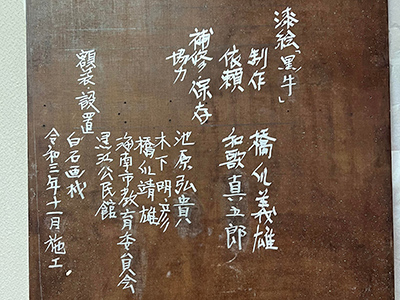 漆絵「黒牛」
制作 橋爪義雄
依頼 和歌真五郎
補修・保存
協力 池原弘貴
木下明彦
橋爪靖雄
海南市教育委員会
黒江公民館
額装・設置 白石画桟
令和三年十一月施工。